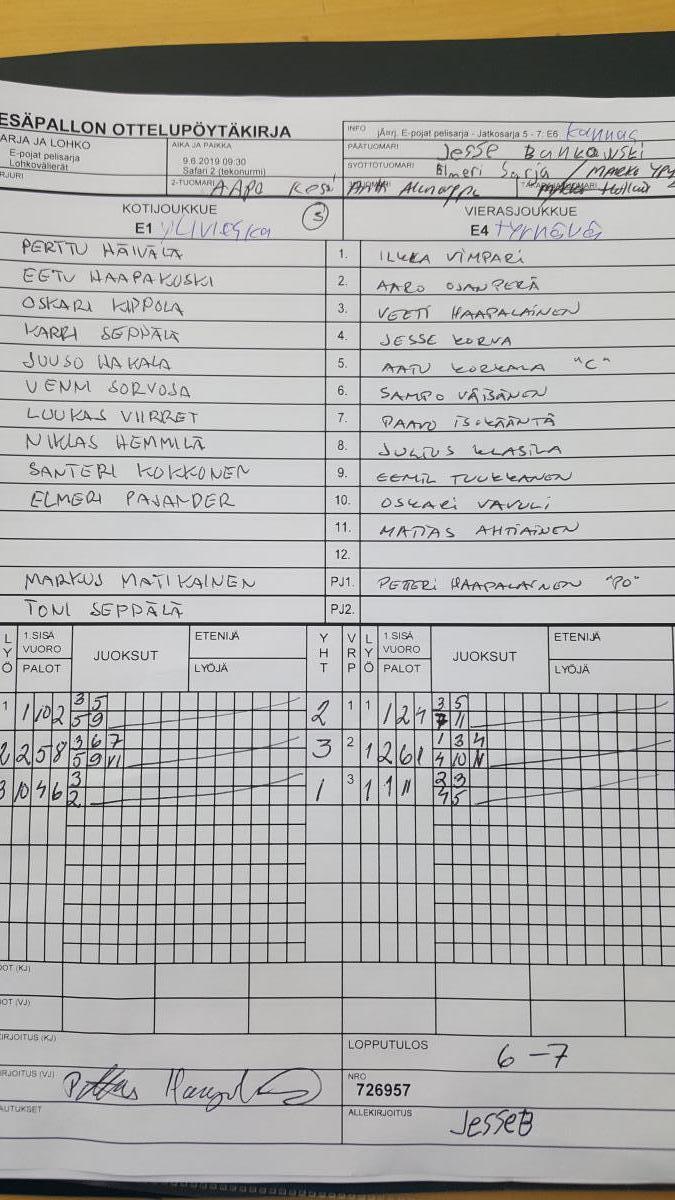 ESÄPALLON OTTELUPÖYTÄKIRJA
ARJA JA LOHKO
E-pojat pelisarja
Lohkovälierät
RJURI
AIKA JA PAIKKA
9.6.2019 09:30
Safari 2 (tekonurmi)
2-TUOMARI AAPO
INFO jÄnrj. E-pojat pelisarja - Jatkosarja 5 - 7: E6 Kannas
PÄÄTUOMARI Jesse Bankowski
SYÖTTÖTUOMARI Elmeri Sarja / MARKO
KOTIJOUKKUE
E1 YLIVIESKA
VIERASJOUKKUE
E4 TYRNÄVÄ
PERTTU HÄIVÄLÄ 1. ILKKA VIMPARI
EETU HAAPAKOSKI 2. AARO OJANPERÄ
OSKARI KIPPOLA 3. VEETI HAAPALAINEN
KARRI SEPPÄLÄ 4. JESSE KORVA
JUUSO HAKALA 5. AATU KORKALA "C"
VENNI SORVOJA 6. SAMPO VÄISÄNEN
LUUKAS VIIRRET 7. PAAVO ISOKÄÄNTÄ
NIKLAS HEMMILÄ 8. JULIUS KLASILA
SANTERI KOKKONEN 9. EEMIL TUUKKANEN
ELMERI PAJANDER 10. OSKARI VAVULI
11. MATIAS AHTIAINEN
12.
MARKUS MATIKAINEN PJ1. PETTERI HAAPALAINEN "PO"
TONI SEPPÄLÄ PJ2.
LYÖ 1.SISÄ VUORO PALOT JUOKSUT ETENIJÄ LYÖJÄ YHT VRP LYÖ 1.SISÄ VUORO PALOT JUOKSUT ETENIJÄ LYÖJÄ
1 1 10 2 3 5 2 1 1 1 2 4 3 5
5 9 7 11
2 2 5 8 3 6 7 3 2 1 2 6 1 1 3 4
5 9 11 4 10 11
3 10 4 6 3 1 3 1 1 11 2 3
2 4 5
OOT (KJ)
OOT (VJ)
KIRJOITUS (KJ)
KIRJOITUS (VJ)
AUTUKSET
LOPPUTULOS 6 - 7
NRO
726957
ALLEKIRJOITUS JesseB